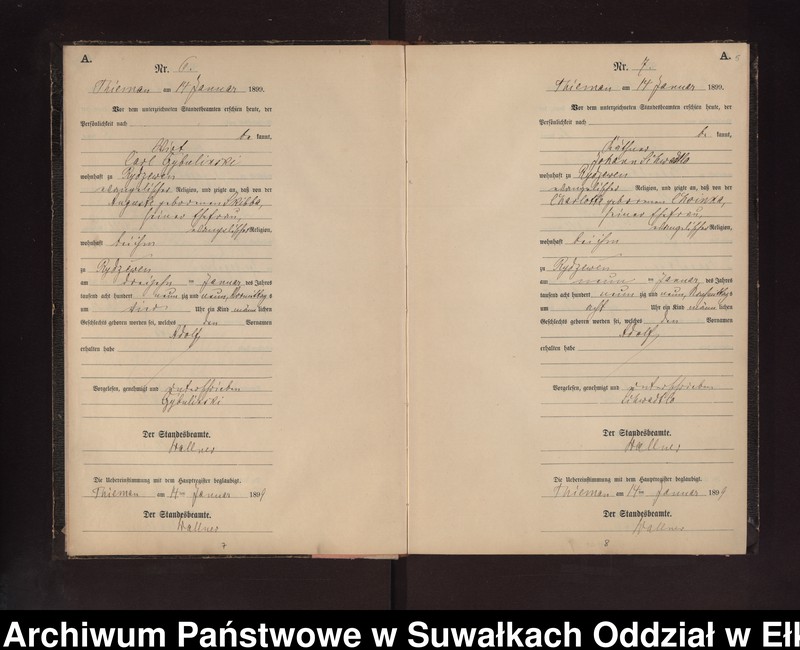 A.
Nr. 6.
Thieman am 14 Januar 1899.
Vor dem unterzeichneten Standesbeamten erschien heute, der
Persönlichkeit nach
be kannt,
Wirt
Carl Czybulinski
wohnhaft zu Rydzewen
evangelischer Religion, und zeigte an, daß von der
Auguste geborenen Skibba,
seiner Ehefrau,
evangelischer Religion,
wohnhaft bei ihm
zu Rydzewen
am dreizehn ten Januar des Jahres
tausend acht hundert neun zig und neun, Vormittags
um vier Uhr ein Kind männ lichen
Geschlechts geboren worden sei, welches den Vornamen
Adolf
erhalten habe
Vorgelesen, genehmigt und unterschrieben
Czybulinski
Der Standesbeamte.
Wallner
Die Uebereinstimmung mit dem Hauptregister beglaubigt.
Thieman am 14ten Januar 1899
Der Standesbeamte.
Wallner
7
A.
Nr. 7.
Thieman am 14 Januar 1899.
Vor dem unterzeichneten Standesbeamten erschien heute, der
Persönlichkeit nach
be kannt,
Käthner
Johann Sikwadlo
wohnhaft zu Rydzewen
evangelischer Religion, und zeigte an, daß von der
Charlotte geborenen Choinza,
seiner Ehefrau,
evangelischer Religion,
wohnhaft bei ihm
zu Rydzewen
am neun ten Januar des Jahres
tausend acht hundert neun zig und neun, Nachmittags
um acht Uhr ein Kind männ lichen
Geschlechts geboren worden sei, welches den Vornamen
Adolf
erhalten habe
Vorgelesen, genehmigt und unterschrieben
Sikwadlo
Der Standesbeamte.
Wallner
Die Uebereinstimmung mit dem Hauptregister beglaubigt.
Thieman am 14ten Januar 1899
Der Standesbeamte.
Wallner
8
Archiwum Państwowe w Suwałkach Oddział w Ełk